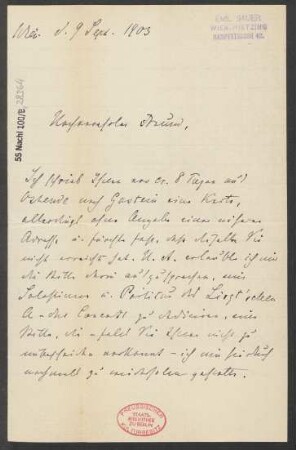 Wien d. 9 Sept. 1903
EMIL SAUER
WIEN-HIETZING
55 Nachl 100/B,
Hochverehrter Freund,
Ich schrieb Ihnen vor ca. 8 Tagen aus
Ostende nach Gastein eine Karte,
allerdings ohne Angabe einer näheren
Adresse u. fürchte fast, dass dieselbe Sie
nicht erreicht hat. U. A. erlaubte ich mir
die Bitte darin auszusprechen, mir
Solostimme u. Partitur des Liszt'schen
A-dur Concerts zu dedicieren, eine
Bitte, die – falls Sie Ihnen nicht zu
unbescheiden vorkommt – ich mir hierdurch
nochmals zu wiederholen gestatte.
PREUSSISCHER
STAATS-
BIBLIOTHEK
ZU BERLIN
KULTURBESITZ